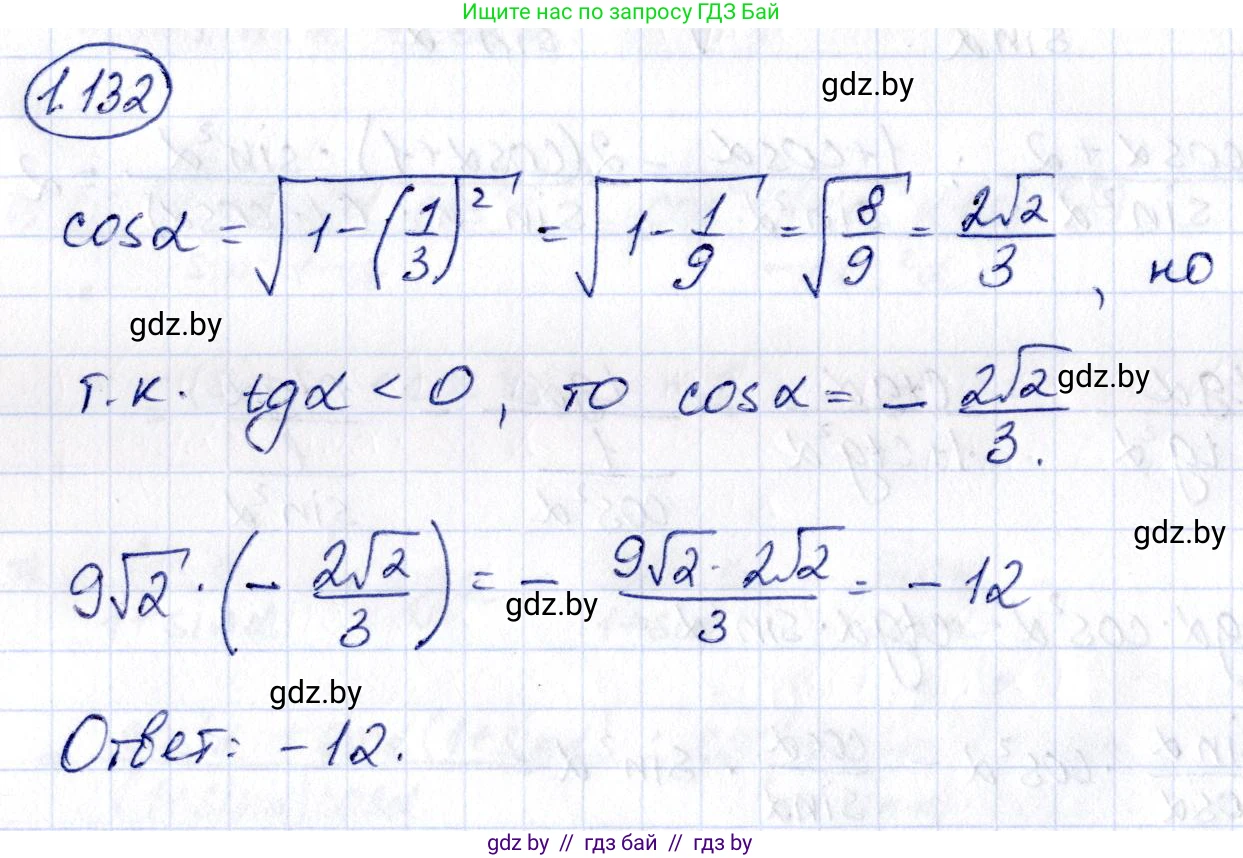 Ищите нас по запросу ГДЗ Бай
1.132
gdz.by
cosα = √(1-(1/3)²) = √(1-1/9) = √(8/9) = 2√2/3, но
gdz.by
т.к. tgα < 0, то cosα = - 2√2/3.
gdz.by
gdz.by
9√2 · (- 2√2/3) = - 9√2 · 2√2/3 = - 12
gdz.by
gdz.by
Ответ: - 12.
gdz.by // гдз бай // гдз by